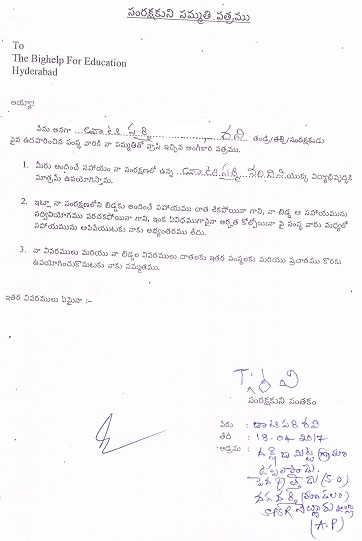 సంరక్షకుని సమ్మతి పత్రము
To
The Bighelp For Education
Hyderabad
అయ్యా!
నేను అనగా రవి తండ్రి/తల్లి/సంరక్షకుడు
పైన ఉదహరించిన సంస్థ వారికి నా సమ్మతితో వ్రాసి ఇచ్చిన అంగీకార పత్రము.
1. మీరు అందించే సహాయం నా సంరక్షణలో ఉన్న యొక్క విద్యాభివృద్ధికి
మాత్రమే ఉపయోగిస్తాము.
2. ఇట్లా నా సంరక్షణలోని బిడ్డకు అందించే సహాయము దాత లేకపోయినా గాని, నా బిడ్డ ఆ సహాయమును
సద్వినియోగము పరచకపోయినా గాని, ఇంక ఏవిధముగానైనా అర్హత కోల్పోయినా పై సంస్థ వారు మధ్యలో
సహాయమును ఆపివేయుటకు నాకు అభ్యంతరము లేదు.
3. నా వివరములు మరియు నా బిడ్డల వివరములు దాతలకు ఇతర సంస్థలకు మరియు ప్రచారము కొరకు
ఉపయోగించుకొనుటకు నాకు సమ్మతము.
ఇతర వివరములు ఏమైనా :-
T. రవి
సంరక్షకుని సంతకం
పేరు : రవి
తేది : 18-04-2017
అడ్రసు :
SPSR నెల్లూరు జిల్లా
(A.P)